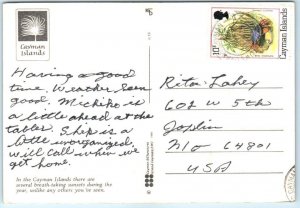 Cayman
Islands
10¢
Cayman Islands
Having a good
time. Weather been
good. Michiko is
a little ahead at the
tables. Shep is a
little unorganized
will call when we
get home.
Rita Lahey
602 W 5th
Joplin
MO 64801
USA
In the Cayman Islands there are
several breath-taking sunsets during the
year, unlike any others you've seen.